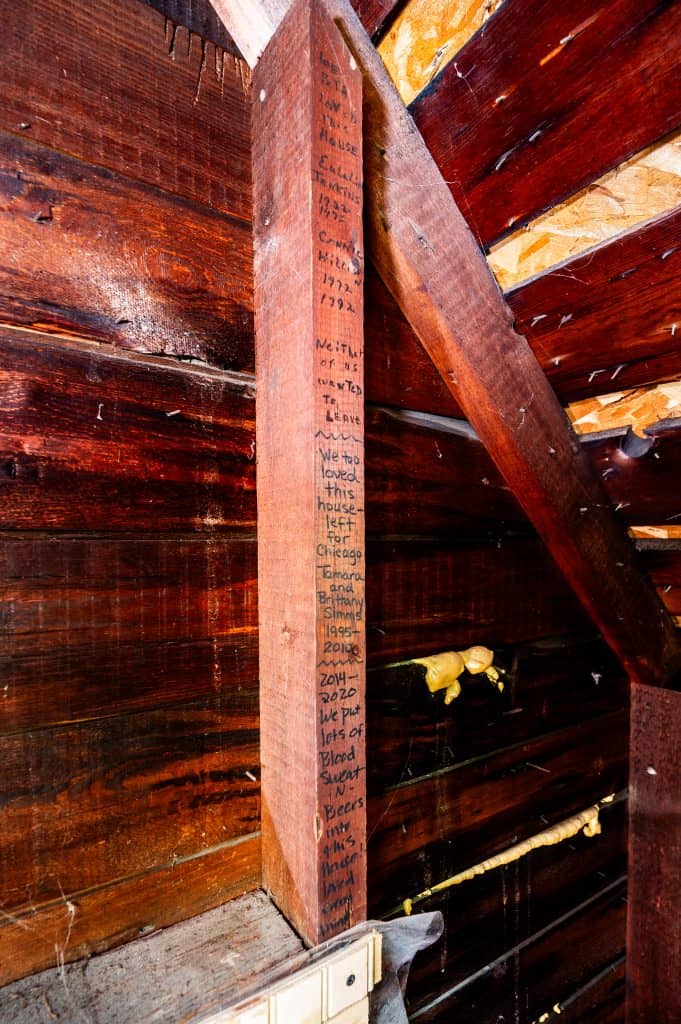 Both
Loved
This
House
Jenkins
1922
1972
Connie
1972
1792
Neither
of us
wanted
to
LEAVE
We too
loved
this
house-
left
for
Chicago
Tamara
and
Brittany
Simms
1995-
2010
2014-
2020
We put
lots of
Blood
Sweat
-N-
Beers
into
this
House
loved
every